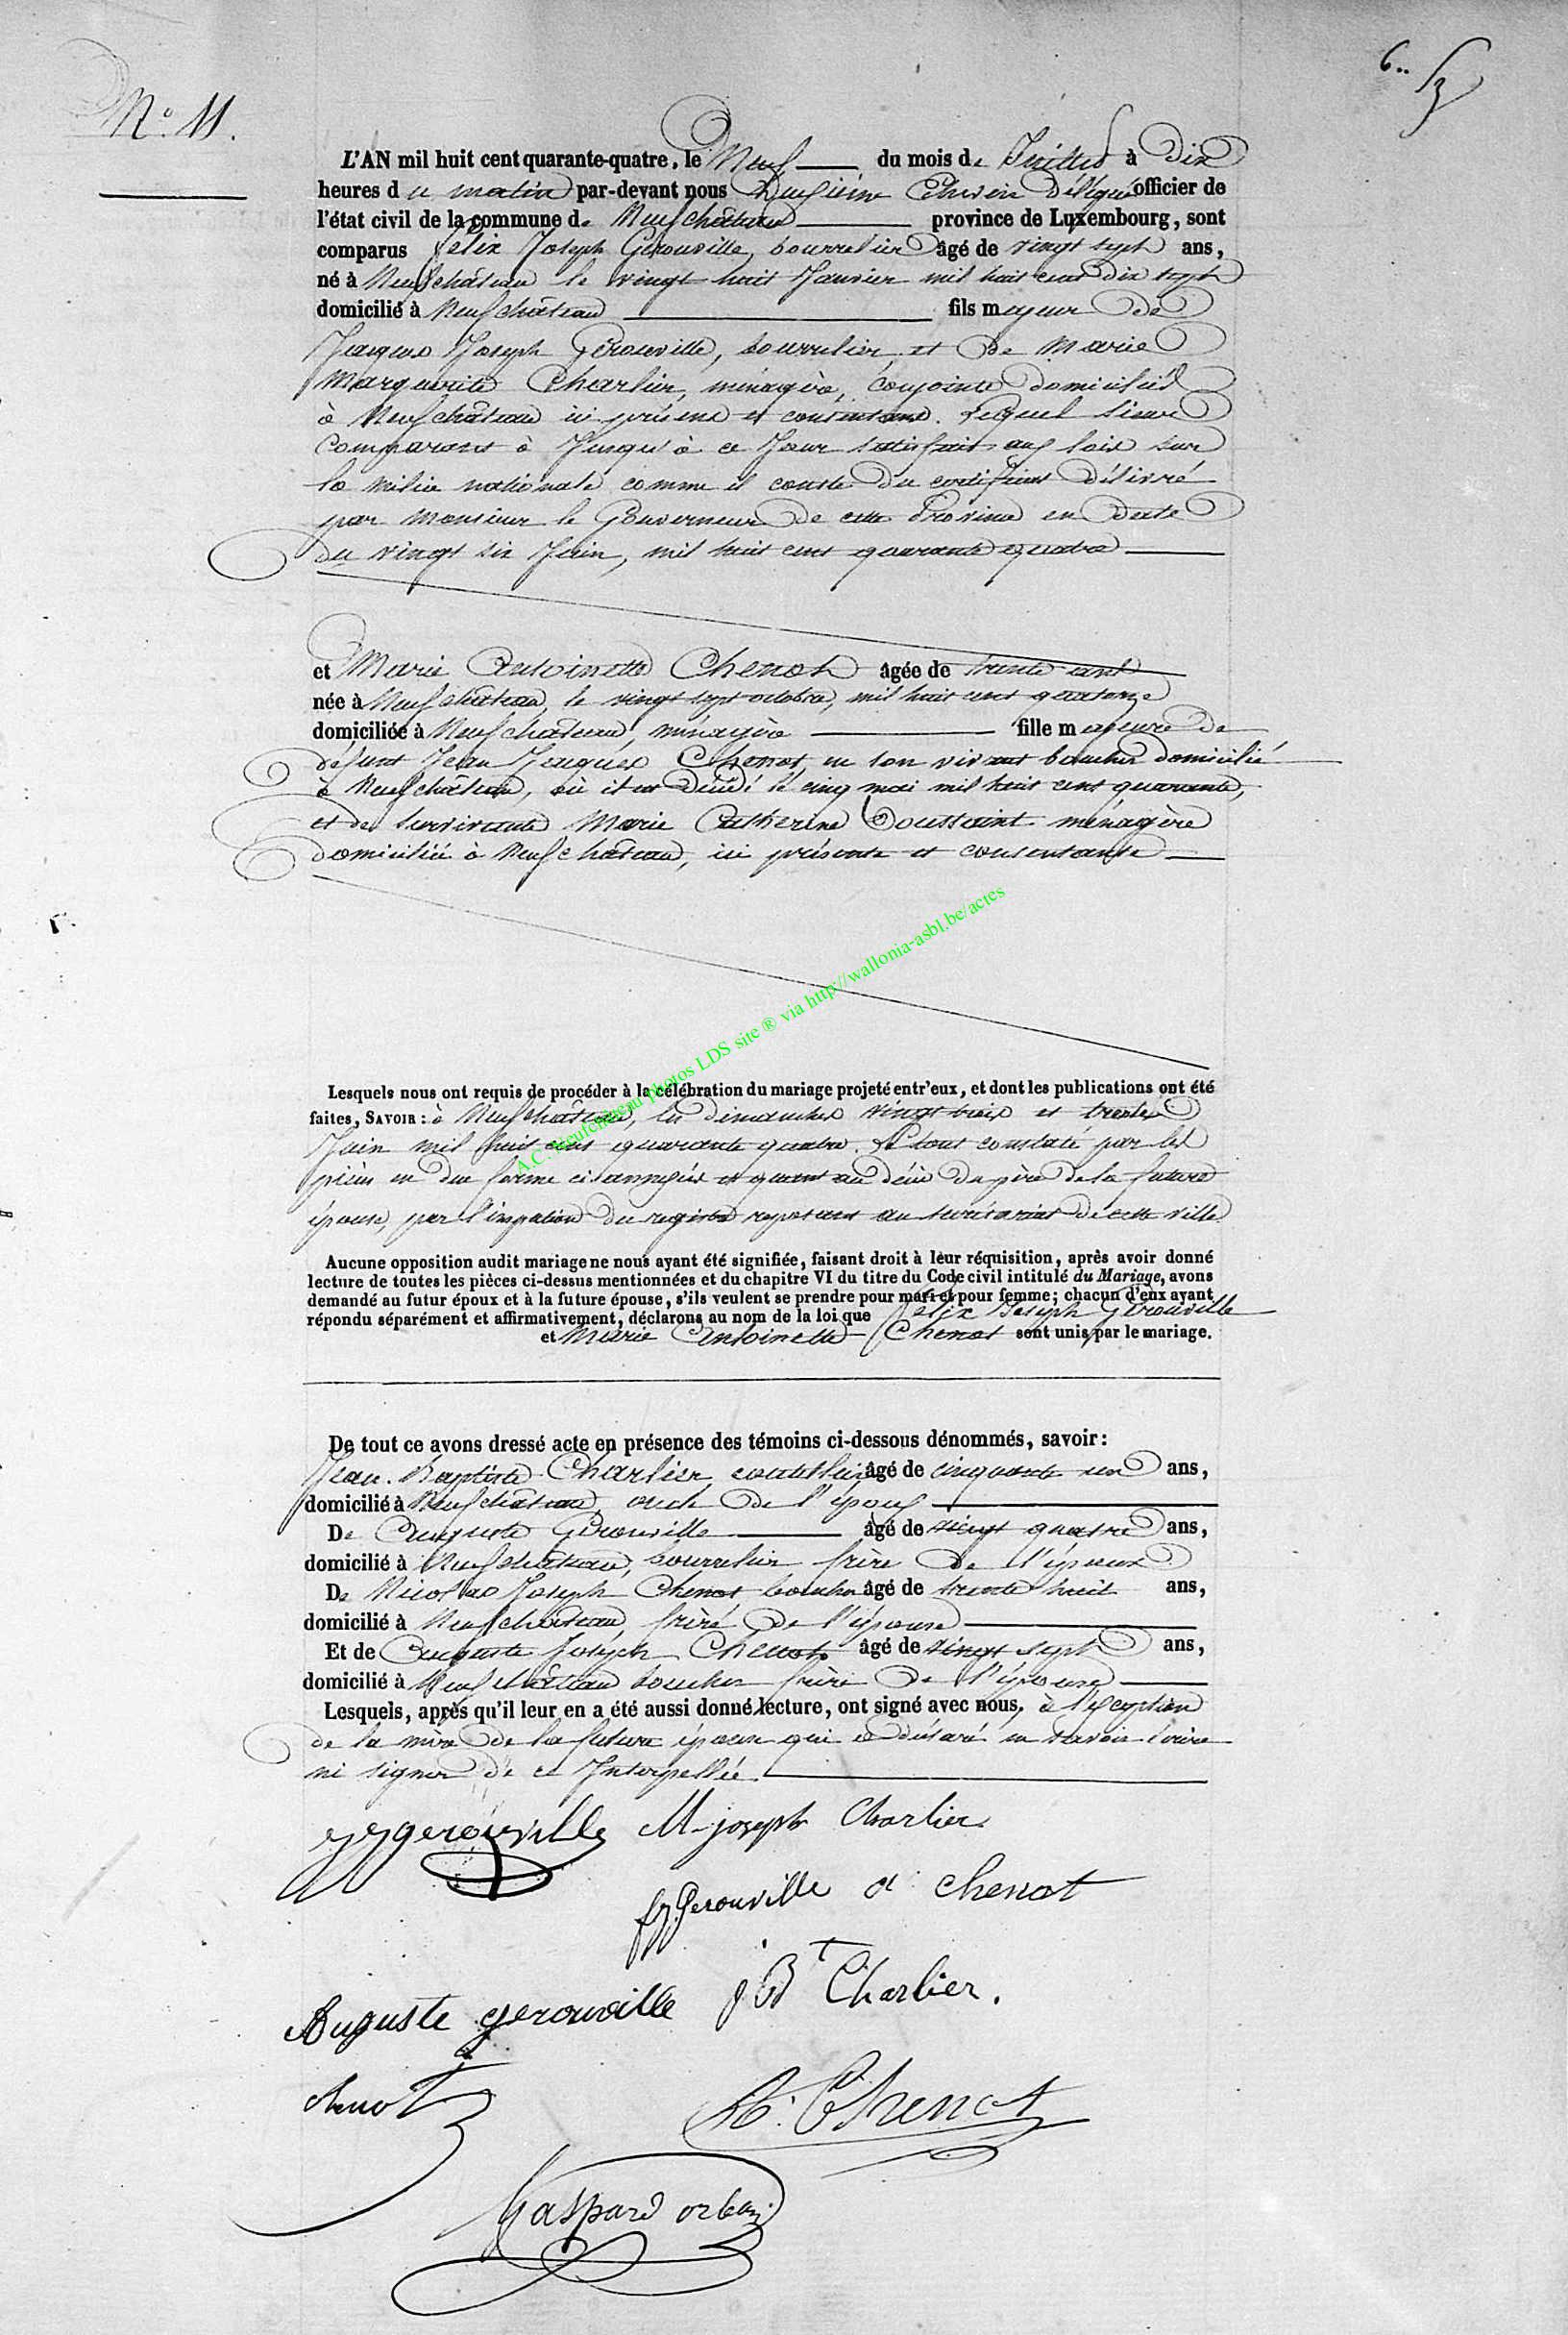 N.° 11.
6..
L'AN mil huit cent quarante-quatre, le Neuf du mois de Juillet à Dix
heures du matin par-devant nous Deuxième Echevin Délégué officier de
l'état civil de la commune de Neufchâteau province de Luxembourg, sont
comparus félix Joseph Gérouville, bourrelier âgé de vingt sept ans,
né à Neufchâteau le vingt huit Janvier mil huit cent dix sept
domicilié à Neufchâteau fils majeur de
Jacques Joseph Gérouville, bourrelier, et de Marie
Marguerite Charlier, ménagère, conjoints domiciliés
à Neufchâteau ici présens et consentans. Lequel sieur
Comparant à Jusqu'à ce Jour satisfait aux lois sur
la milice nationale comme il conste du certificat délivré
par Monsieur le Gouverneur de cette Province en date
du vingt six Juin, mil huit cent quarante quatre
et Marie Antoinette Chenot âgée de trente ans
née à Neufchâteau, le vingt sept octobre, mil huit cent quatorze
domiciliée à Neufchâteau, ménagère fille majeure de
défunt Jean Jacques Chenot, en son vivant boucher domicilié
à Neufchâteau, où il est décédé le cinq mai mil huit cent quarante,
et de survivante Marie Catherine Toussaint ménagère
domiciliée à Neufchâteau, ici présente et consentante
A.C. Neufchâteau photos LDS site ® via http://wallonia-asbl.be/actes
Lesquels nous ont requis de procéder à la célébration du mariage projeté entr'eux, et dont les publications ont été
faites, SAVOIR : à Neufchâteau, les dimanches vingt trois et trente
Juin mil huit cent quarante quatre. Le tout constaté par les
pièces en due forme ci annexées et quant au décès du père de la future
épouse, par l'inspection du registre reposant au secrétariat de cette ville
Aucune opposition audit mariage ne nous ayant été signifiée, faisant droit à leur réquisition, après avoir donné
lecture de toutes les pièces ci-dessus mentionnées et du chapitre VI du titre du Code civil intitulé du Mariage, avons
demandé au futur époux et à la future épouse, s'ils veulent se prendre pour mari et pour femme; chacun d'eux ayant
répondu séparément et affirmativement, déclarons au nom de la loi que félix Joseph Gérouville
et Marie Antoinette Chenot sont unis par le mariage.
De tout ce avons dressé acte en présence des témoins ci-dessous dénommés, savoir:
Jean Baptiste Charlier, coutellier âgé de cinquante un ans,
domicilié à Neufchâteau, oncle de l'époux
De Auguste Gérouville âgé de vingt quatre ans,
domicilié à Neufchâteau, bourrelier frère de l'époux
De Nicolas Joseph Chenot boucher âgé de trente huit ans,
domicilié à Neufchâteau, frère de l'épouse
Et de Auguste Joseph Chenot âgé de vingt sept ans,
domicilié à Neufchâteau boucher frère de l'épouse
Lesquels, après qu'il leur en a été aussi donné lecture, ont signé avec nous, à l'exception
de la mère de la future épouse qui a déclaré ne savoir écrire
ni signer de ce Interpellée.
JJgerouville M-joseph Charlier
fJ. Gerouville A chenot
Auguste gerouville j Bt Charlier.
chenot A. Chenot
Gaspard orban